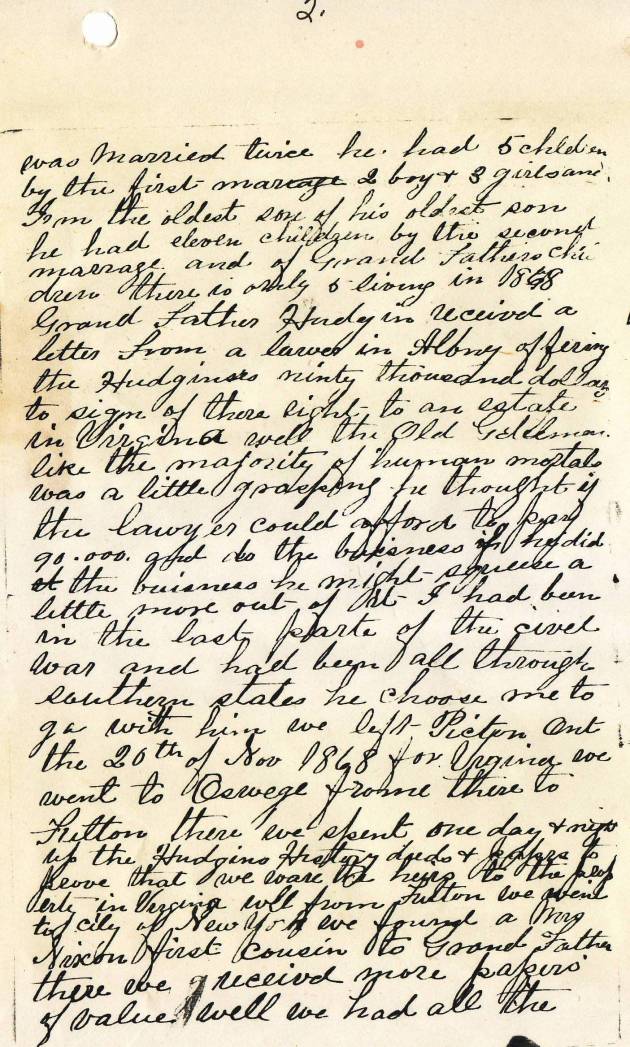 2.
was married twice he had 5 children
by the first marrage 2 boy & 3 girls and
I'm the oldest son of his oldest son
he had eleven children by the second
marrage and of Grand Fathers chil
dren there is only 5 living in 1868
Grand Father Hudgin receivd a
letter from a lawer in Albny offering
the Hudginses ninty thousand dollars
to sign of there right to an estate
in Virgina well the Old Gentleman
like the majority of human mortals
was a little grasping he thought if
the lawyer could afford to pay
90.000. and do the buisness if he did
the buisness he might squeese a
little more out of it I had been
in the last parte of the civel
war and had been all through
southern states he choose me to
go with him we left Picton Ont
the 20th of Nov 1868 for Virgina we
went to Oswege frome there to
Fulton there we spent one day & night
up the Hudgins History deeds & papers to
prove that we ware the heirs to the prop
erty in Virgina well from Fulton we went
to city of New York we found a Mrs
Nixon first cousin to Grand Father
there we receivd more papers
of value well we had all the